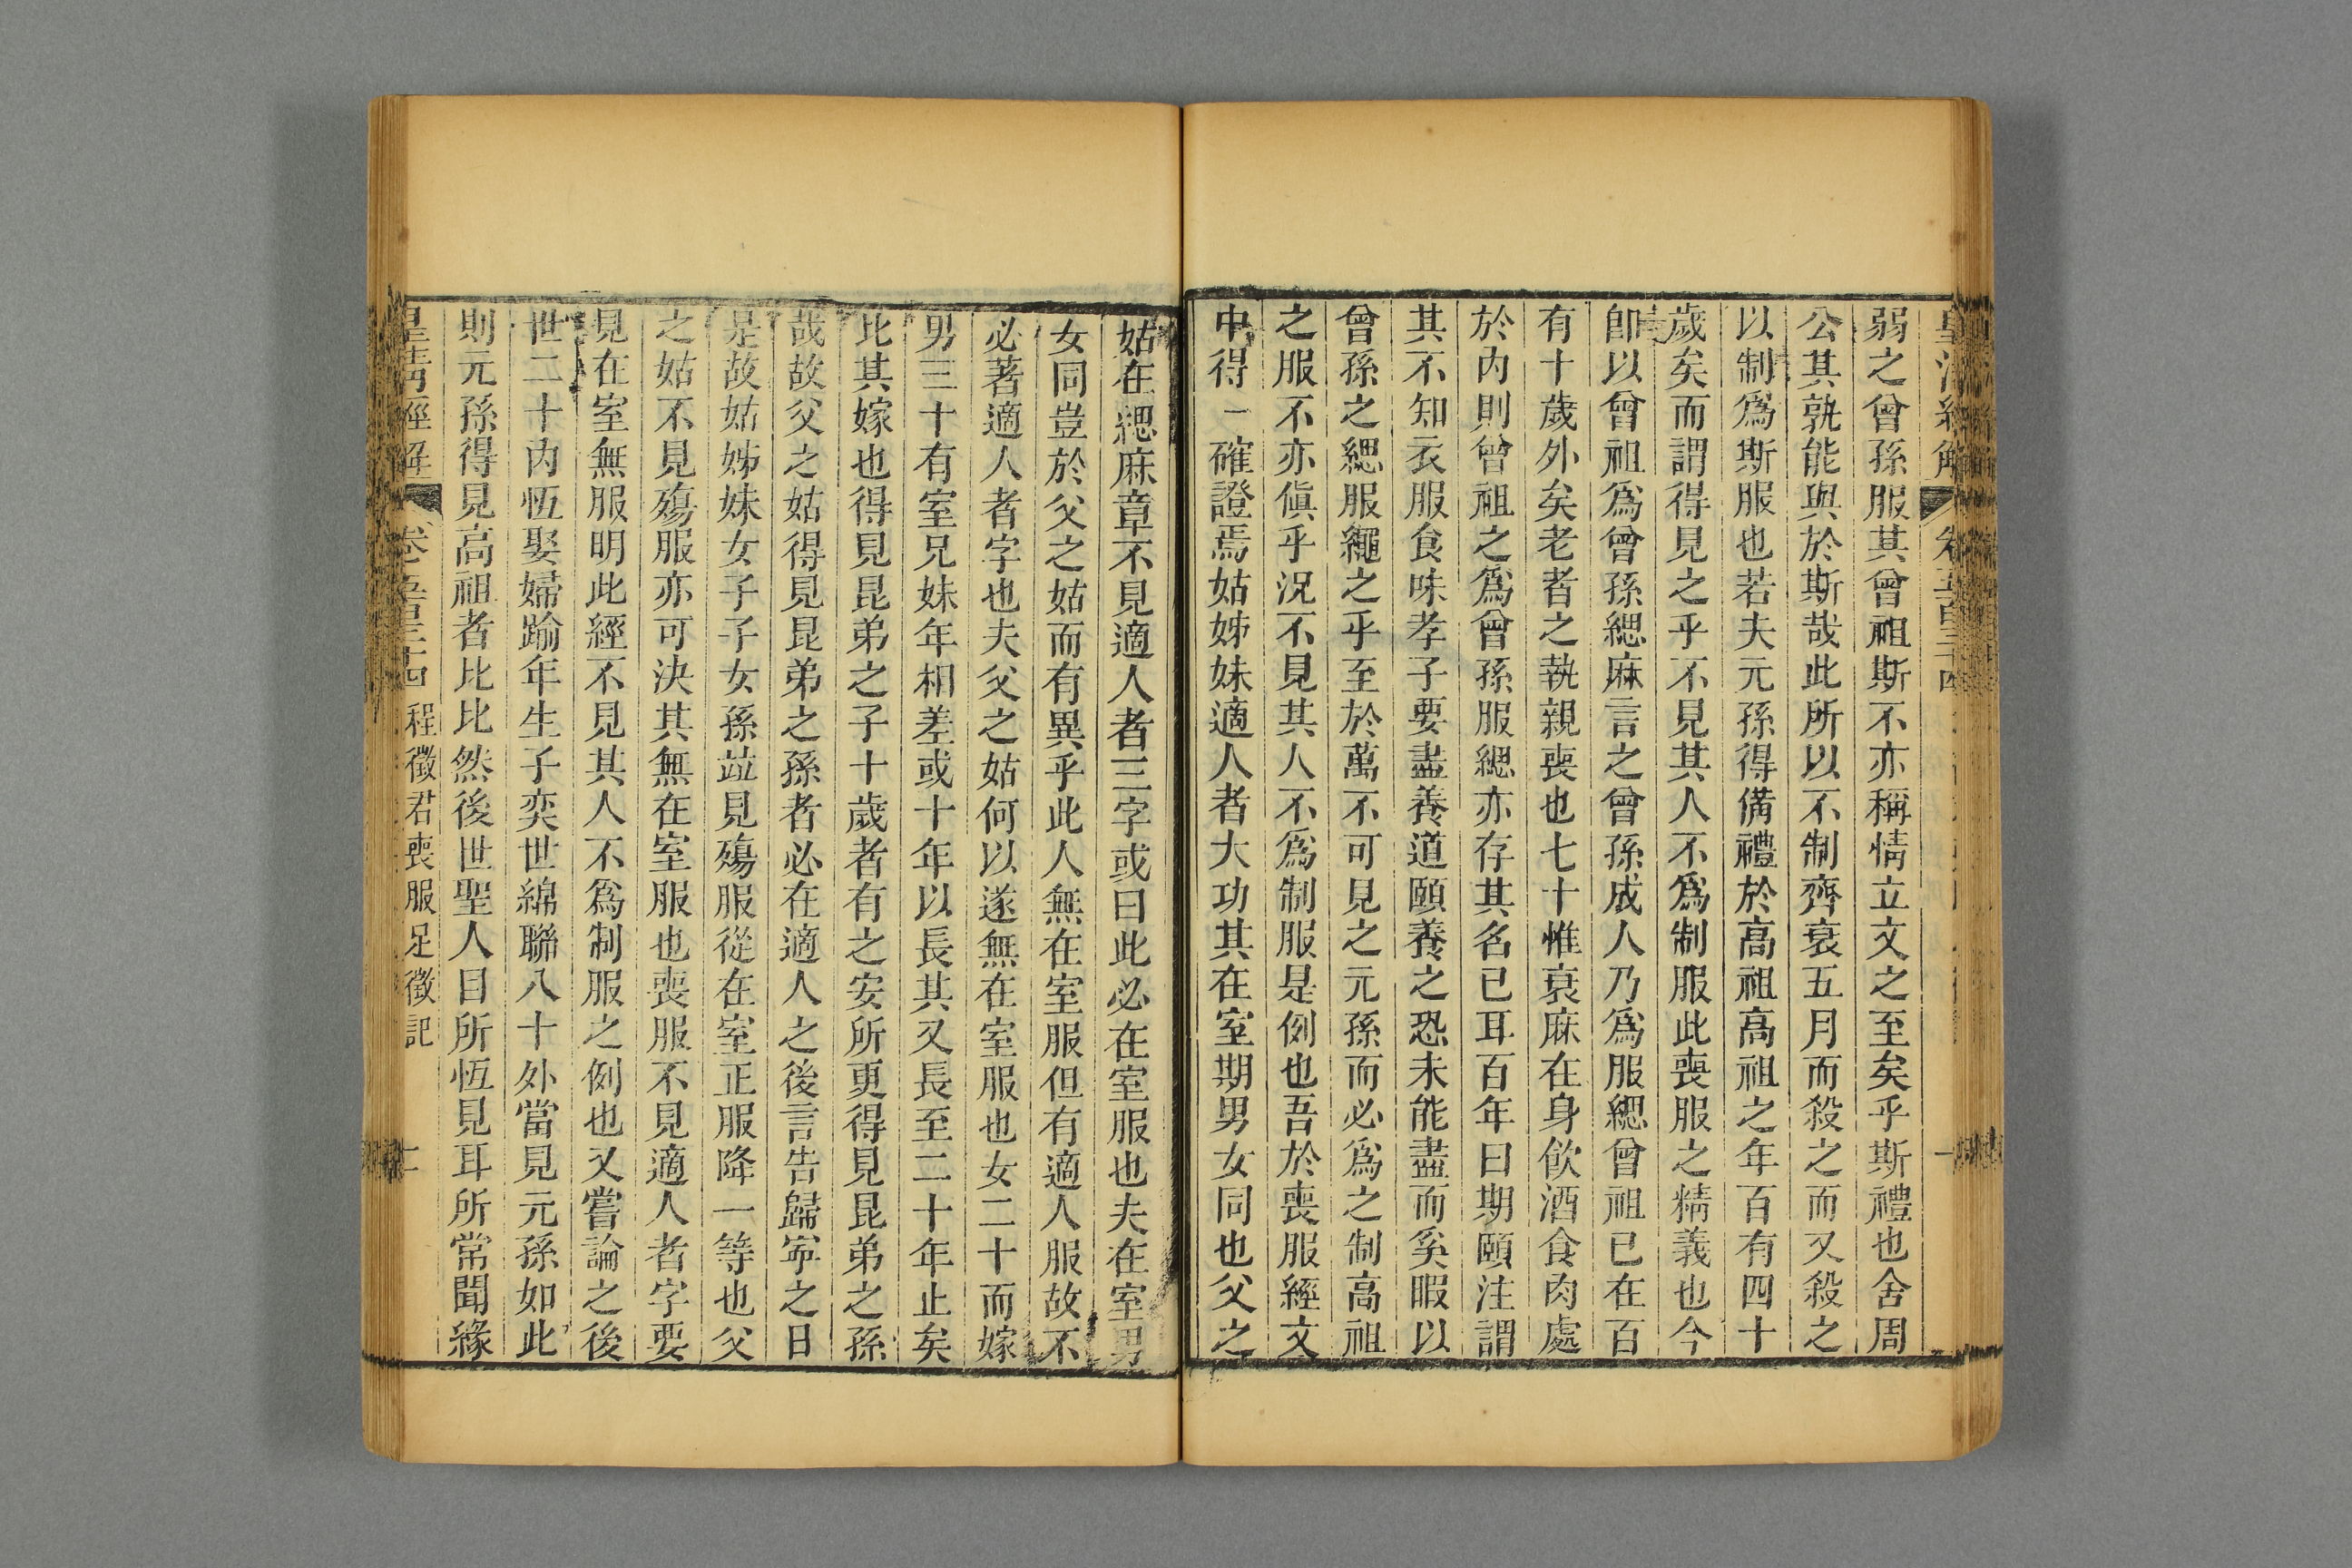 弱之曾孫服其曾祖斯不亦稱情立文之至矣乎斯禮也舍周
公其孰能與於斯哉此所以不制齊衰五月而殺之而又殺之
以制爲斯服也若夫元孫得備禮於高祖高祖之年百有四十
歲矣而謂得見之乎不見其人不爲制服此喪服之精義也今
卽以曾祖爲曾孫緦麻言之曾孫成人乃爲服緦曾祖已在百
有十歲外矣老者之執親喪也七十惟衰麻在身飮酒食肉處
於內則曾祖之爲曾孫服緦亦存其名已耳百年曰期頤注謂
其不知衣服食味孝子要盡養道頤養之恐未能盡而奚暇以
曾孫之緦服繩之乎至於萬不可見之元孫而必爲之制高祖
之服不亦傎乎況不見其人不爲制服是例也吾於喪服經文
中得一確證焉姑姊妹適人者大功其在室期男女同也父之
姑在緦麻章不見適人者三字或曰此必在室服也夫在室男
女同豈於父之姑而有異乎此人無在室服但有適人服故不
必著適人者字也夫父之姑何以遂無在室服也女二十而嫁
男三十有室兄妹年相差或十年以長其又長至二十年止矣
比其嫁也得見昆弟之子十歲者有之安所更得見昆弟之孫
哉故父之姑得見昆弟之孫者必在適人之後言告歸寧之日
是故姑姊妹女子子女孫竝見殤服從在室正服降一等也父
之姑不見殤服亦可決其無在室服也喪服不見適人者字要
見在室無服明此經不見其人不爲制服之例也又嘗論之後
世二十內恆娶婦踰年生子奕世綿聯八十外當見元孫如此
則元孫得見高祖者比比然後世聖人目所恆見耳所常聞緣
皇淸經解 卷五百二十四 程徵君喪服足徵記